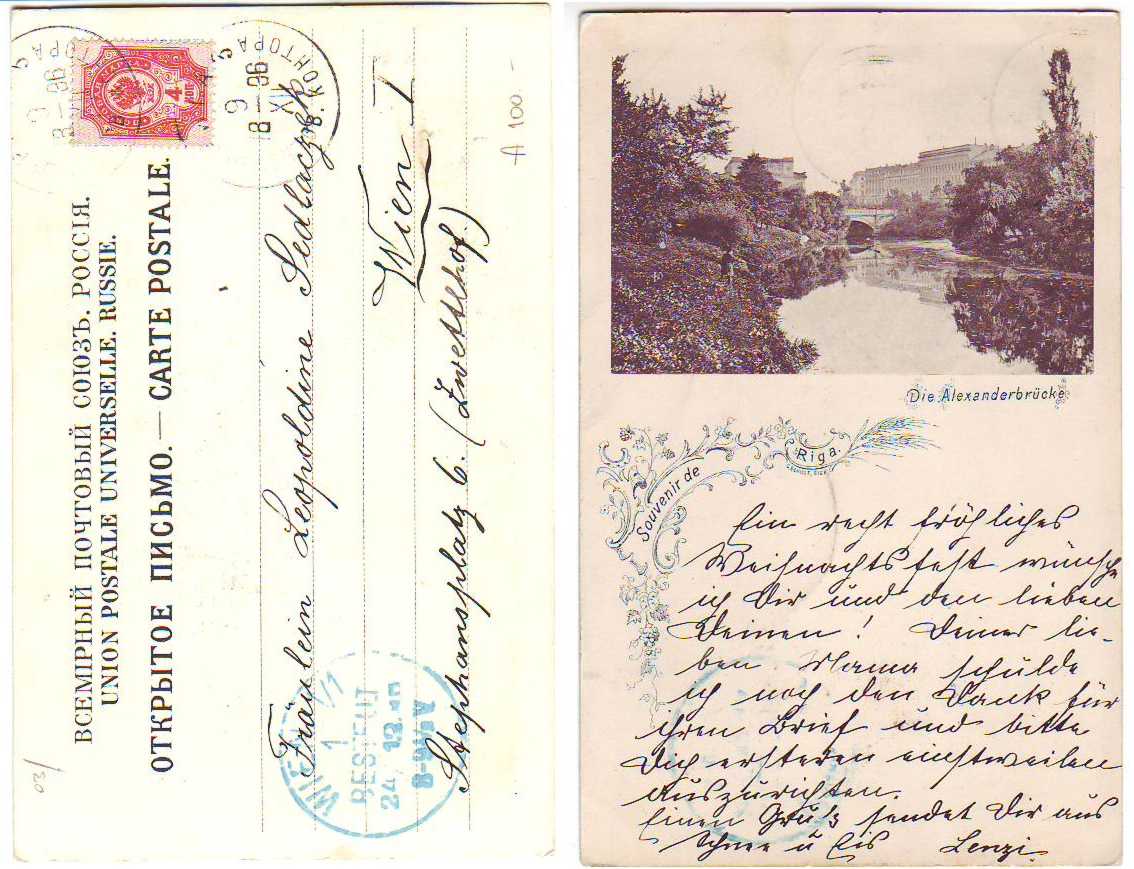 ВСЕМІРНЫЙ ПОЧТОВЫЙ СОЮЗЪ. РОССІЯ.
UNION POSTALE UNIVERSELLE. RUSSIE.
ОТКРЫТОЕ ПИСЬМО. — CARTE POSTALE.
Fräulein Leopoldine Sedlaczek
Wien I
Stephansplatz 6. (Zwettlhof.)
A 100.-
03/
4 КОП
КОНТОРА
5
9
XII
96
WIEN 1/1
1
BESTELLT
24. 12.
8-9½V
Die Alexanderbrücke
Souvenir de Riga.
Ein recht fröhliches
Weihnachtsfest wünsche
ich Dir und den lieben
Deinen! Deiner lie-
ben Mama schulde
ich noch den Dank für
ihren Brief und bitte
Dich ersteren einstweilen
auszurichten.
Einen Gruß sendet Dir aus
Schnee u Eis Lenzi.